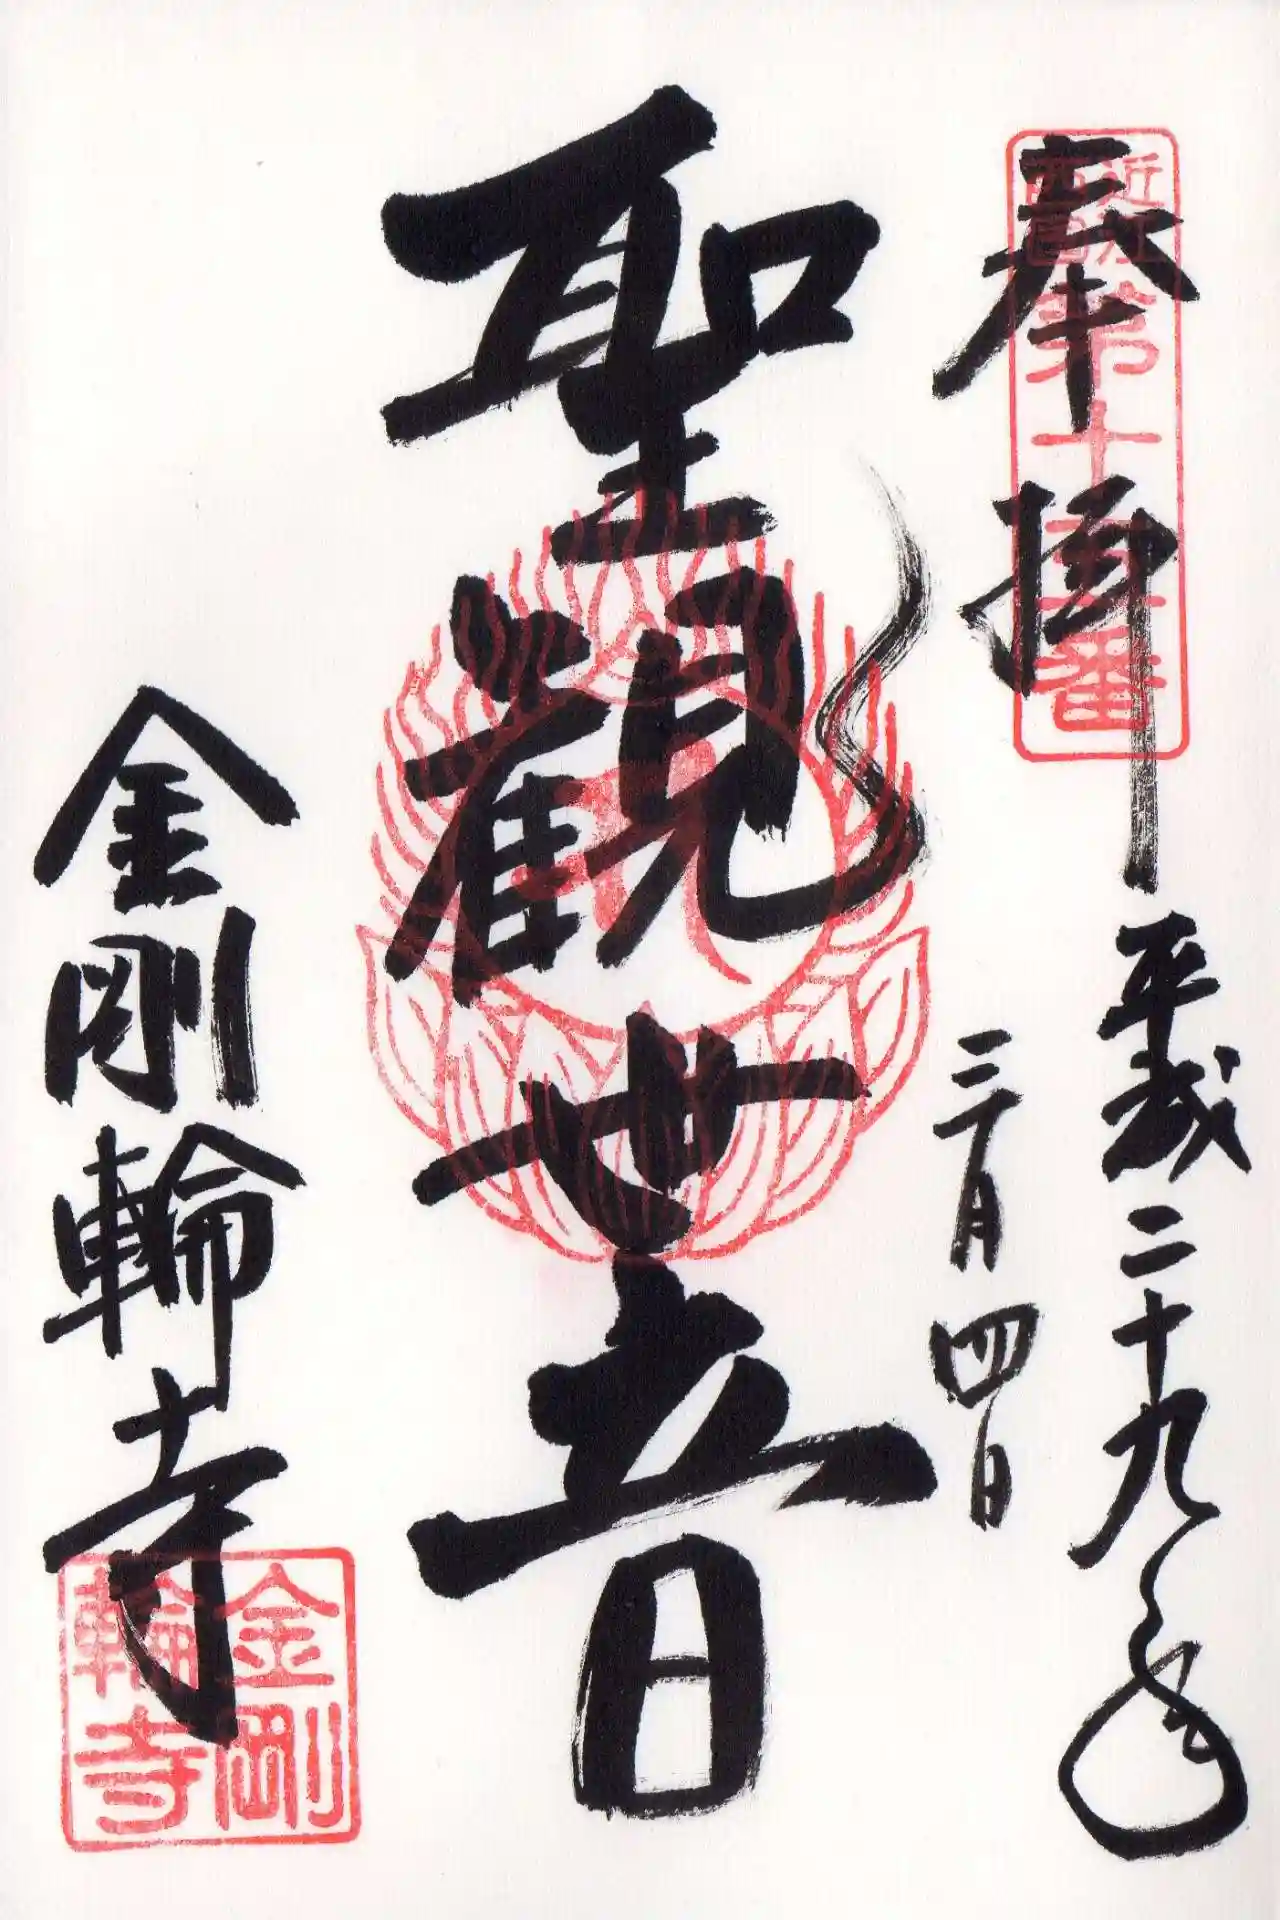 奉拝
近江
西国
第十五番
平成二十九年
三月四日
聖観世音
金剛輪寺
金剛
輪寺